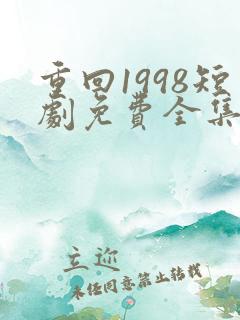 重回1998短
劇免費全集
立迹
未经同意禁止转载